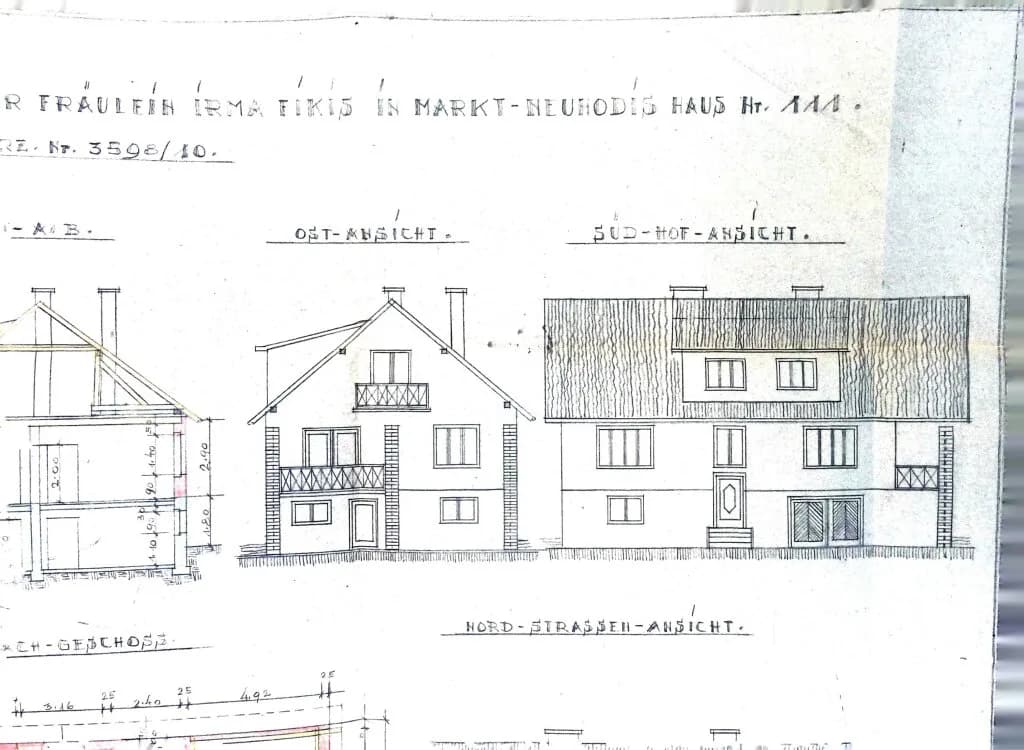 R FRÄULEIN IRMA FIKIS IN MARKT-NEUHODIS HAUS Nr. 111.
RE. Nr. 3598/10.
- A.B.
OST-ANSICHT.
SÜD-HOF-ANSICHT.
2.00
50
1.40
90
2.90
30
90
1.10
1.80
NORD-STRASSEN-ANSICHT.
CH-GESCHOSS.
3.16
25
2.40
25
4.92
25